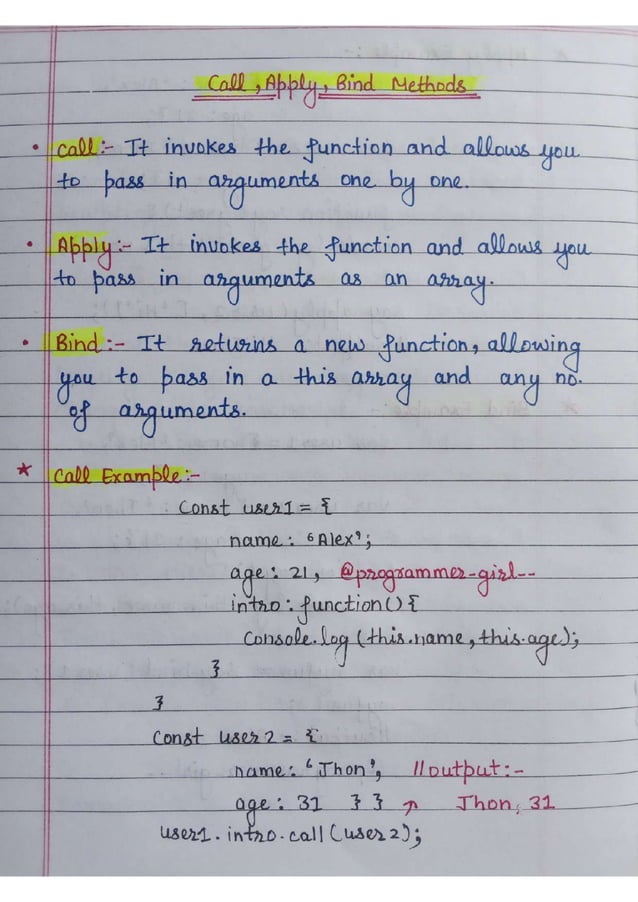 Call, Apply, Bind Methods
• Call :- It invokes the function and allows you
to pass in arguments one by one.
• Apply :- It invokes the function and allows you
to pass in arguments as an array.
• Bind :- It returns a new function, allowing
you to pass in a this array and any no.
of arguments.
* Call Example :-
Const user1 = {
name : 'Alex';
age : 21, @programmer-girl--
intro : function() {
Console.log (this.name, this.age);
}
}
Const user2 = {
name : 'Jhon', //output:-
age : 31 } } ↗ Jhon, 31
user1.intro.call(user2);